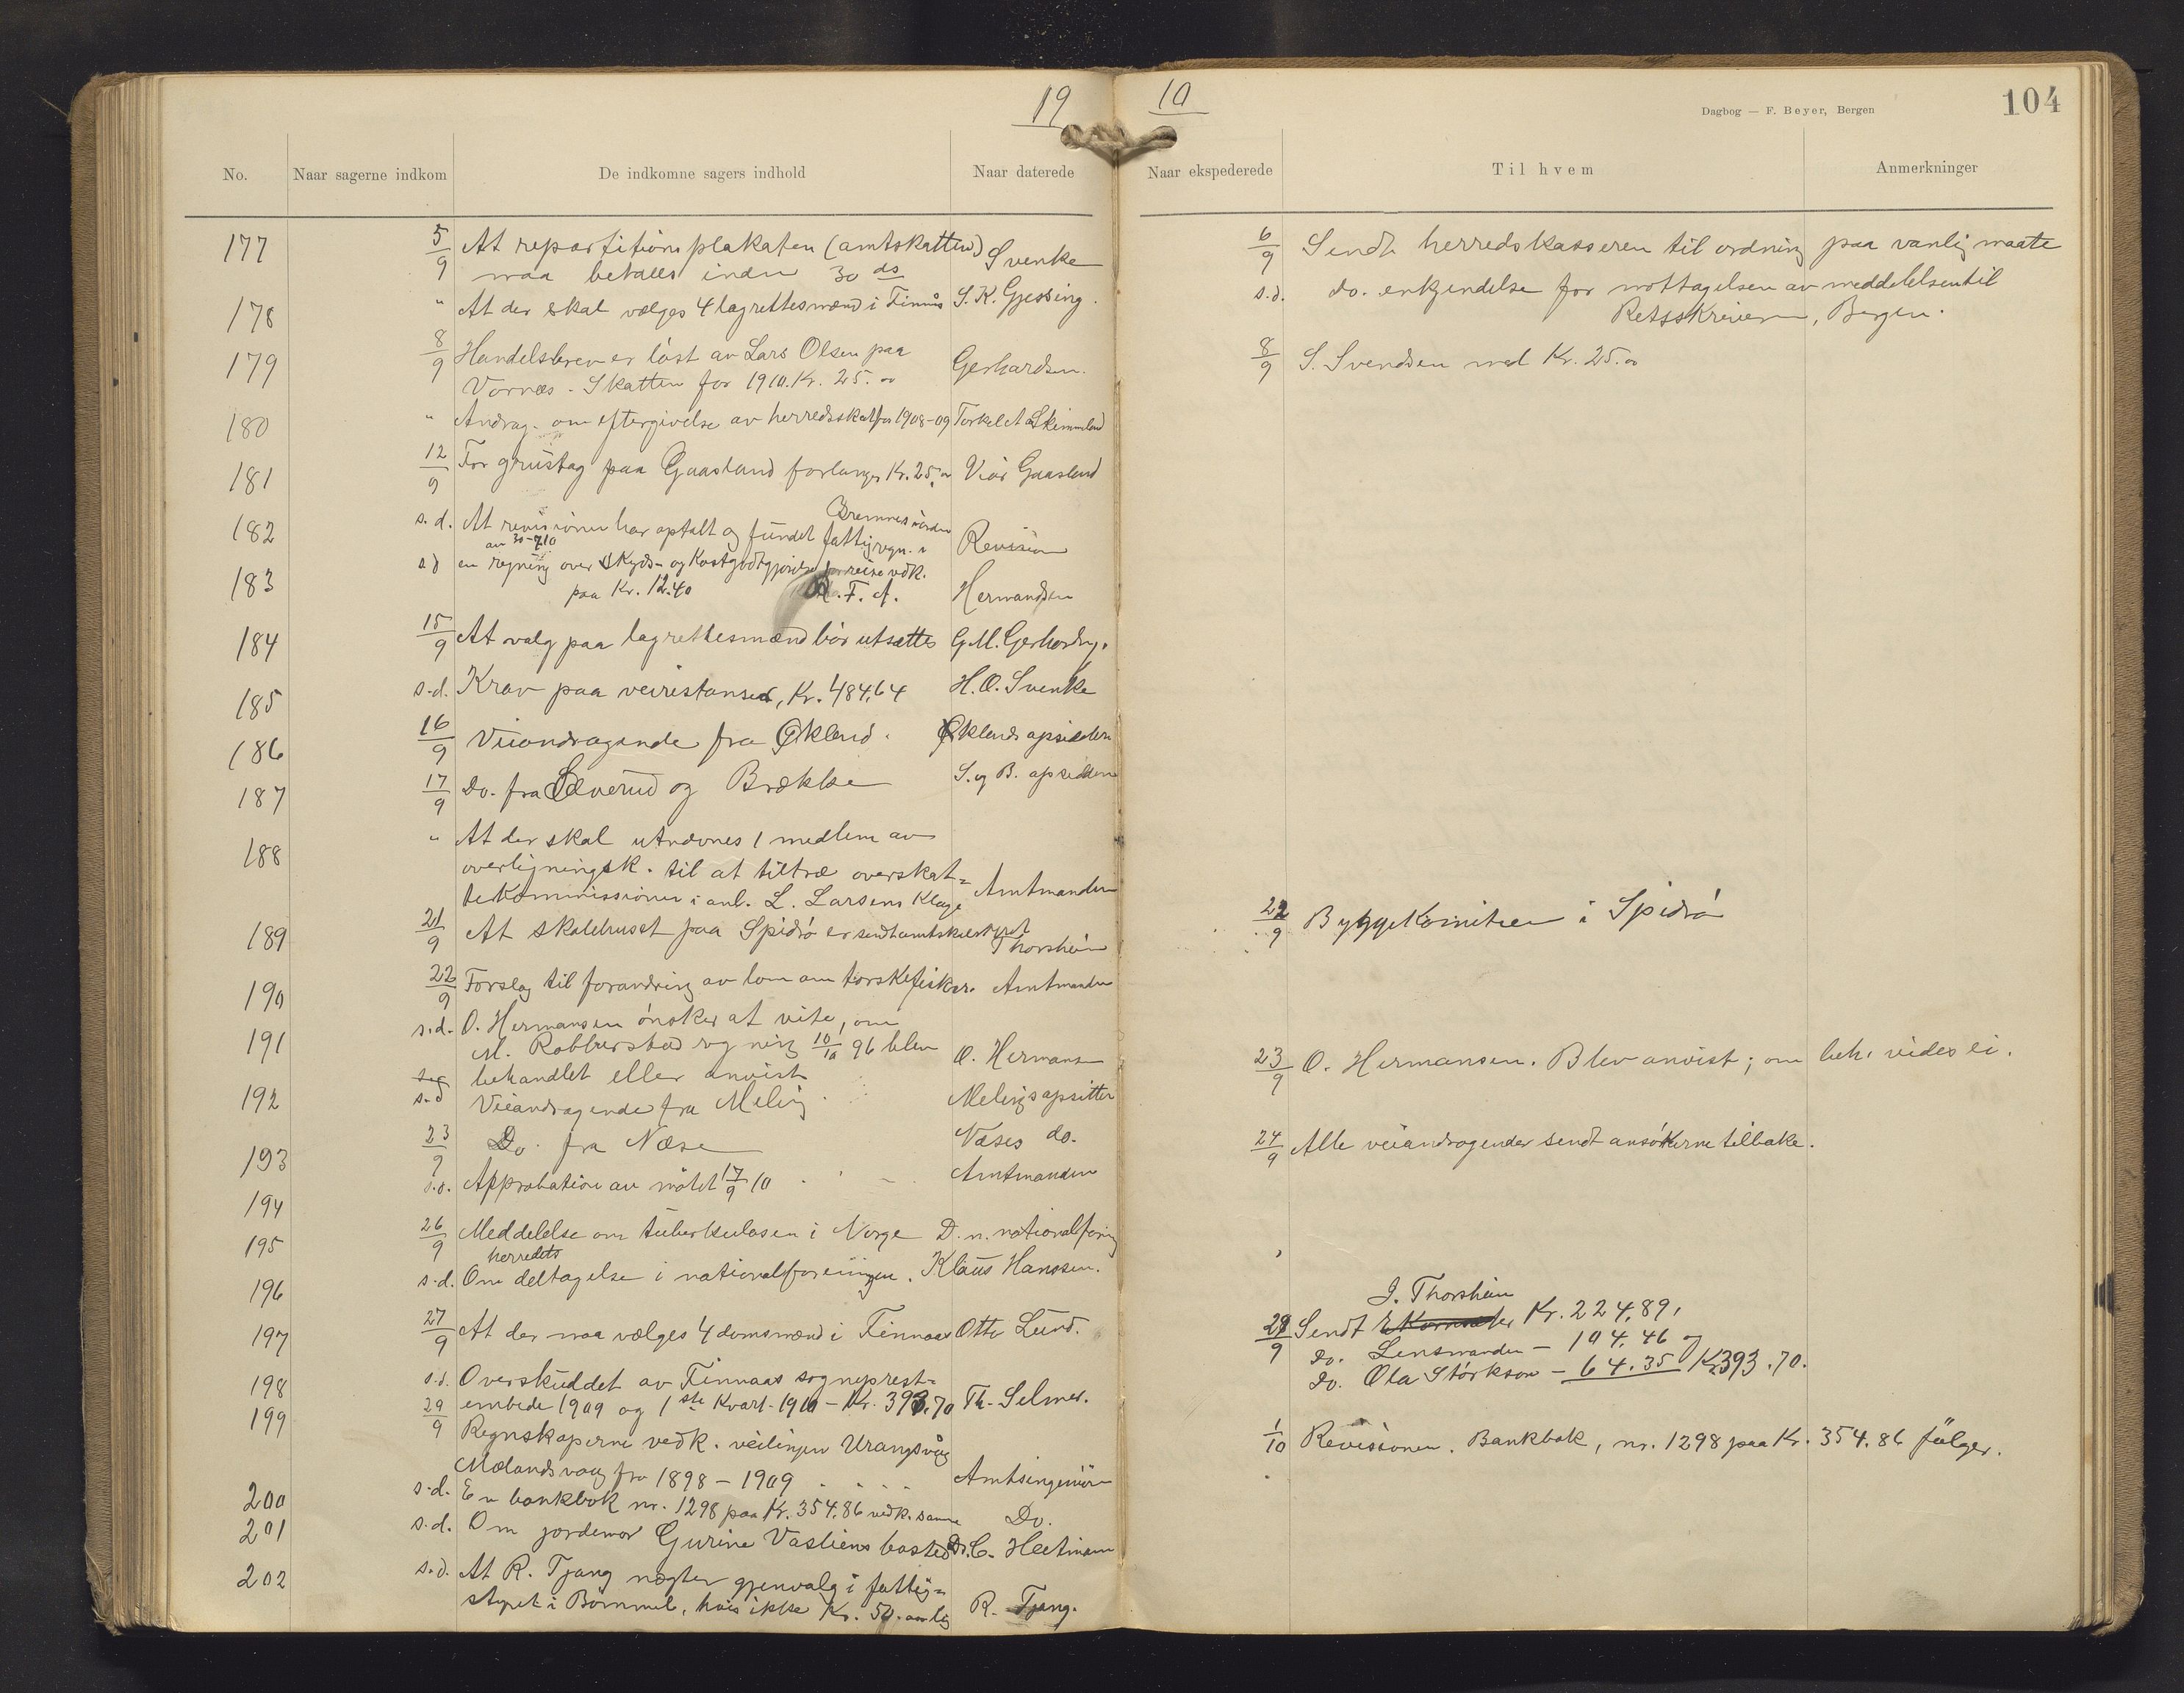 19
10
Dagbog — F. Beyer, Bergen
104
No.
Naar sagerne indkom
De indkomne sagers indhold
Naar daterede
Naar ekspederede
Til hvem
Anmerkninger
177 5/9 At repartitionsplakaten (amtskatten) Svenke
maa betales inden 30 ds
6/9 Sendt herredskasseren til ordning paa vanlig maate
178 " At der skal vælges 4 lagrettesmænd i Finnås S. K. Gjessing.
s.d. do. erkjendelse for mottagelsen av meddelelsen til
Retsskriveren, Bergen.
179 8/9 Handelsbrev er löst av Lars Olsen paa
Vornæs. Skatten for 1910. Kr. 25.00 Gerhardsen.
8/9 S. Svendsen med Kr. 25.00
180 " Andrag. om eftergivelse av herredsskat for 1908-09 Torkel A. Skimmeland
181 12/9 For grustag paa Gaasland forlanges Kr. 25,00 Gaasland
182 s.d. At revisionen har optalt og fundet fattigregn. i
Bremnes i orden Revision
183 s d en regning av 30-7 10 over Skyds- og Kostgodtgjörelse for reise vedk.
paa Kr. 12.40 F. A. Hermandsen
184 15/9 At valg paa lagrettesmænd bör utsættes G. M. Gerhards.
185 s.d. Krav paa veirestanser, Kr. 484,64 H. O. Svenke
186 16/9 Veiandragende fra Økland. Øklands opsiddere
187 17/9 Do. fra Sæverud og Brække S. og B. opsiddere
188 " At der skal utnævnes 1 medlem av
overligningsk. til at tiltræ overskat=
tekommissionen i anl. L. Larsens Klage Amtmanden
189 21/9 At skolehuset paa Spidsö er sendt amtsskolestyret
Thorsheim
22/9 Byggekomiteen i Spidsö
190 22/9 Forslag til forandring av lov om torskefiskeri Amtmanden
191 s.d. O. Hermansen önsker at vite, om
M. Robberstad regning 10/10 96 blev
behandlet eller anvist O. Hermansen
23/9 O. Hermansen. Blev anvist; om beh. vides ei.
192 s.d Veiandragende fra Meling. Melings opsitter
193 23/9 Do. fra Næse Næses do.
24/9 Alle veiandragender sendt ansökerne tilbake.
194 s.d. Approbation av mötet 17/9 10 Amtmanden
195 26/9 Meddelelse om tuberkulosen i Norge D. n. nationalforening
196 s.d. Om herredets deltagelse i nationalforeningen. Klaus Hanssen.
197 27/9 At der maa vælges 4 domsmænd i Finnaas Otto Lund.
J. Thorsheim
29/9 Sendt Kr. 224,89,
do. Lensmanden — 104.46
do. Ola Störkson — 64.35 Kr 393.70.
198 s.d. Overskuddet av Finnaas sogneprest=
embede 1909 og 1ste Kvart. 1910 — Kr. 393.70 Th. Selmer.
199 29/9 Regnskaperne vedk. veilinjen Urangsvåg
Mælandsvaag fra 1898 — 1909 Amtsingeniör
1/10 Revisionen. Bankbok, nr. 1298 paa Kr. 354.86 fölger.
200 s.d. En bankbok nr. 1298 paa Kr. 354.86 vedk. samme Do.
201 s.d. Om jordemor Gurine Vasliens bosted Dr. C. Heitmann
202 s.d. At R. Tjong negter gjenvalg i fattig=
styret i Bömmel, hvis ikke Kr. 50. aarlig R. Tjong.